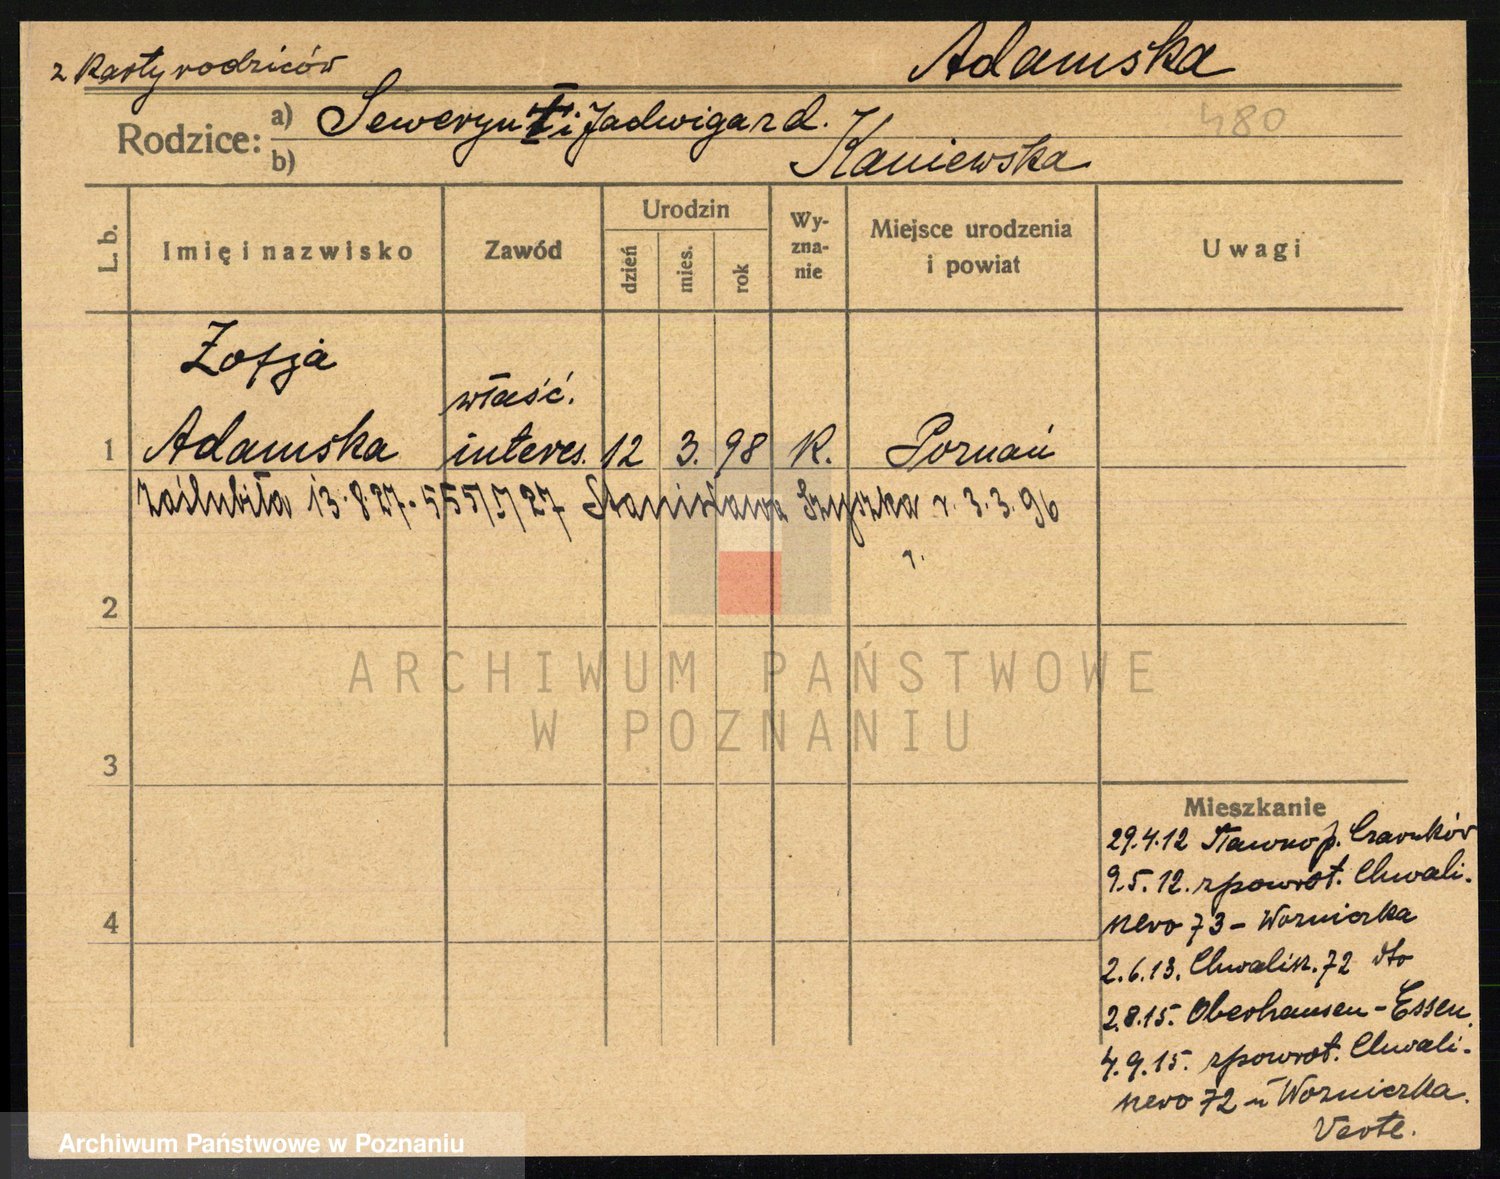 z karty rodziców
Adamska
480
Rodzice: a) Seweryn † i Jadwiga z d.
b) Kaniewska
L. b. Imię i nazwisko Zawód Urodzin dzień mies. rok Wy-zna-nie Miejsce urodzenia i powiat Uwagi
Zofja
właść.
1 Adamska interes. 12 3. 98 K. Poznań
zaślubiła 13.8.27. 555/V/27 Stanisława Szyszka r. 3.3.96
r.
2
ARCHIWUM PAŃSTWOWE
W POZNANIU
3
Mieszkanie
29.4.12 p. Czarnków
9.5.12. zpowrot. Chwali-
4
szewo 73 - Wozniczka
2.6.13. Chwalisz. 72 dto
2.8.15. Oberhausen - Essen.
4.9.15. zpowrot. Chwali-
szewo 72 u Wozniczka.
Verte.
Archiwum Państwowe w Poznaniu